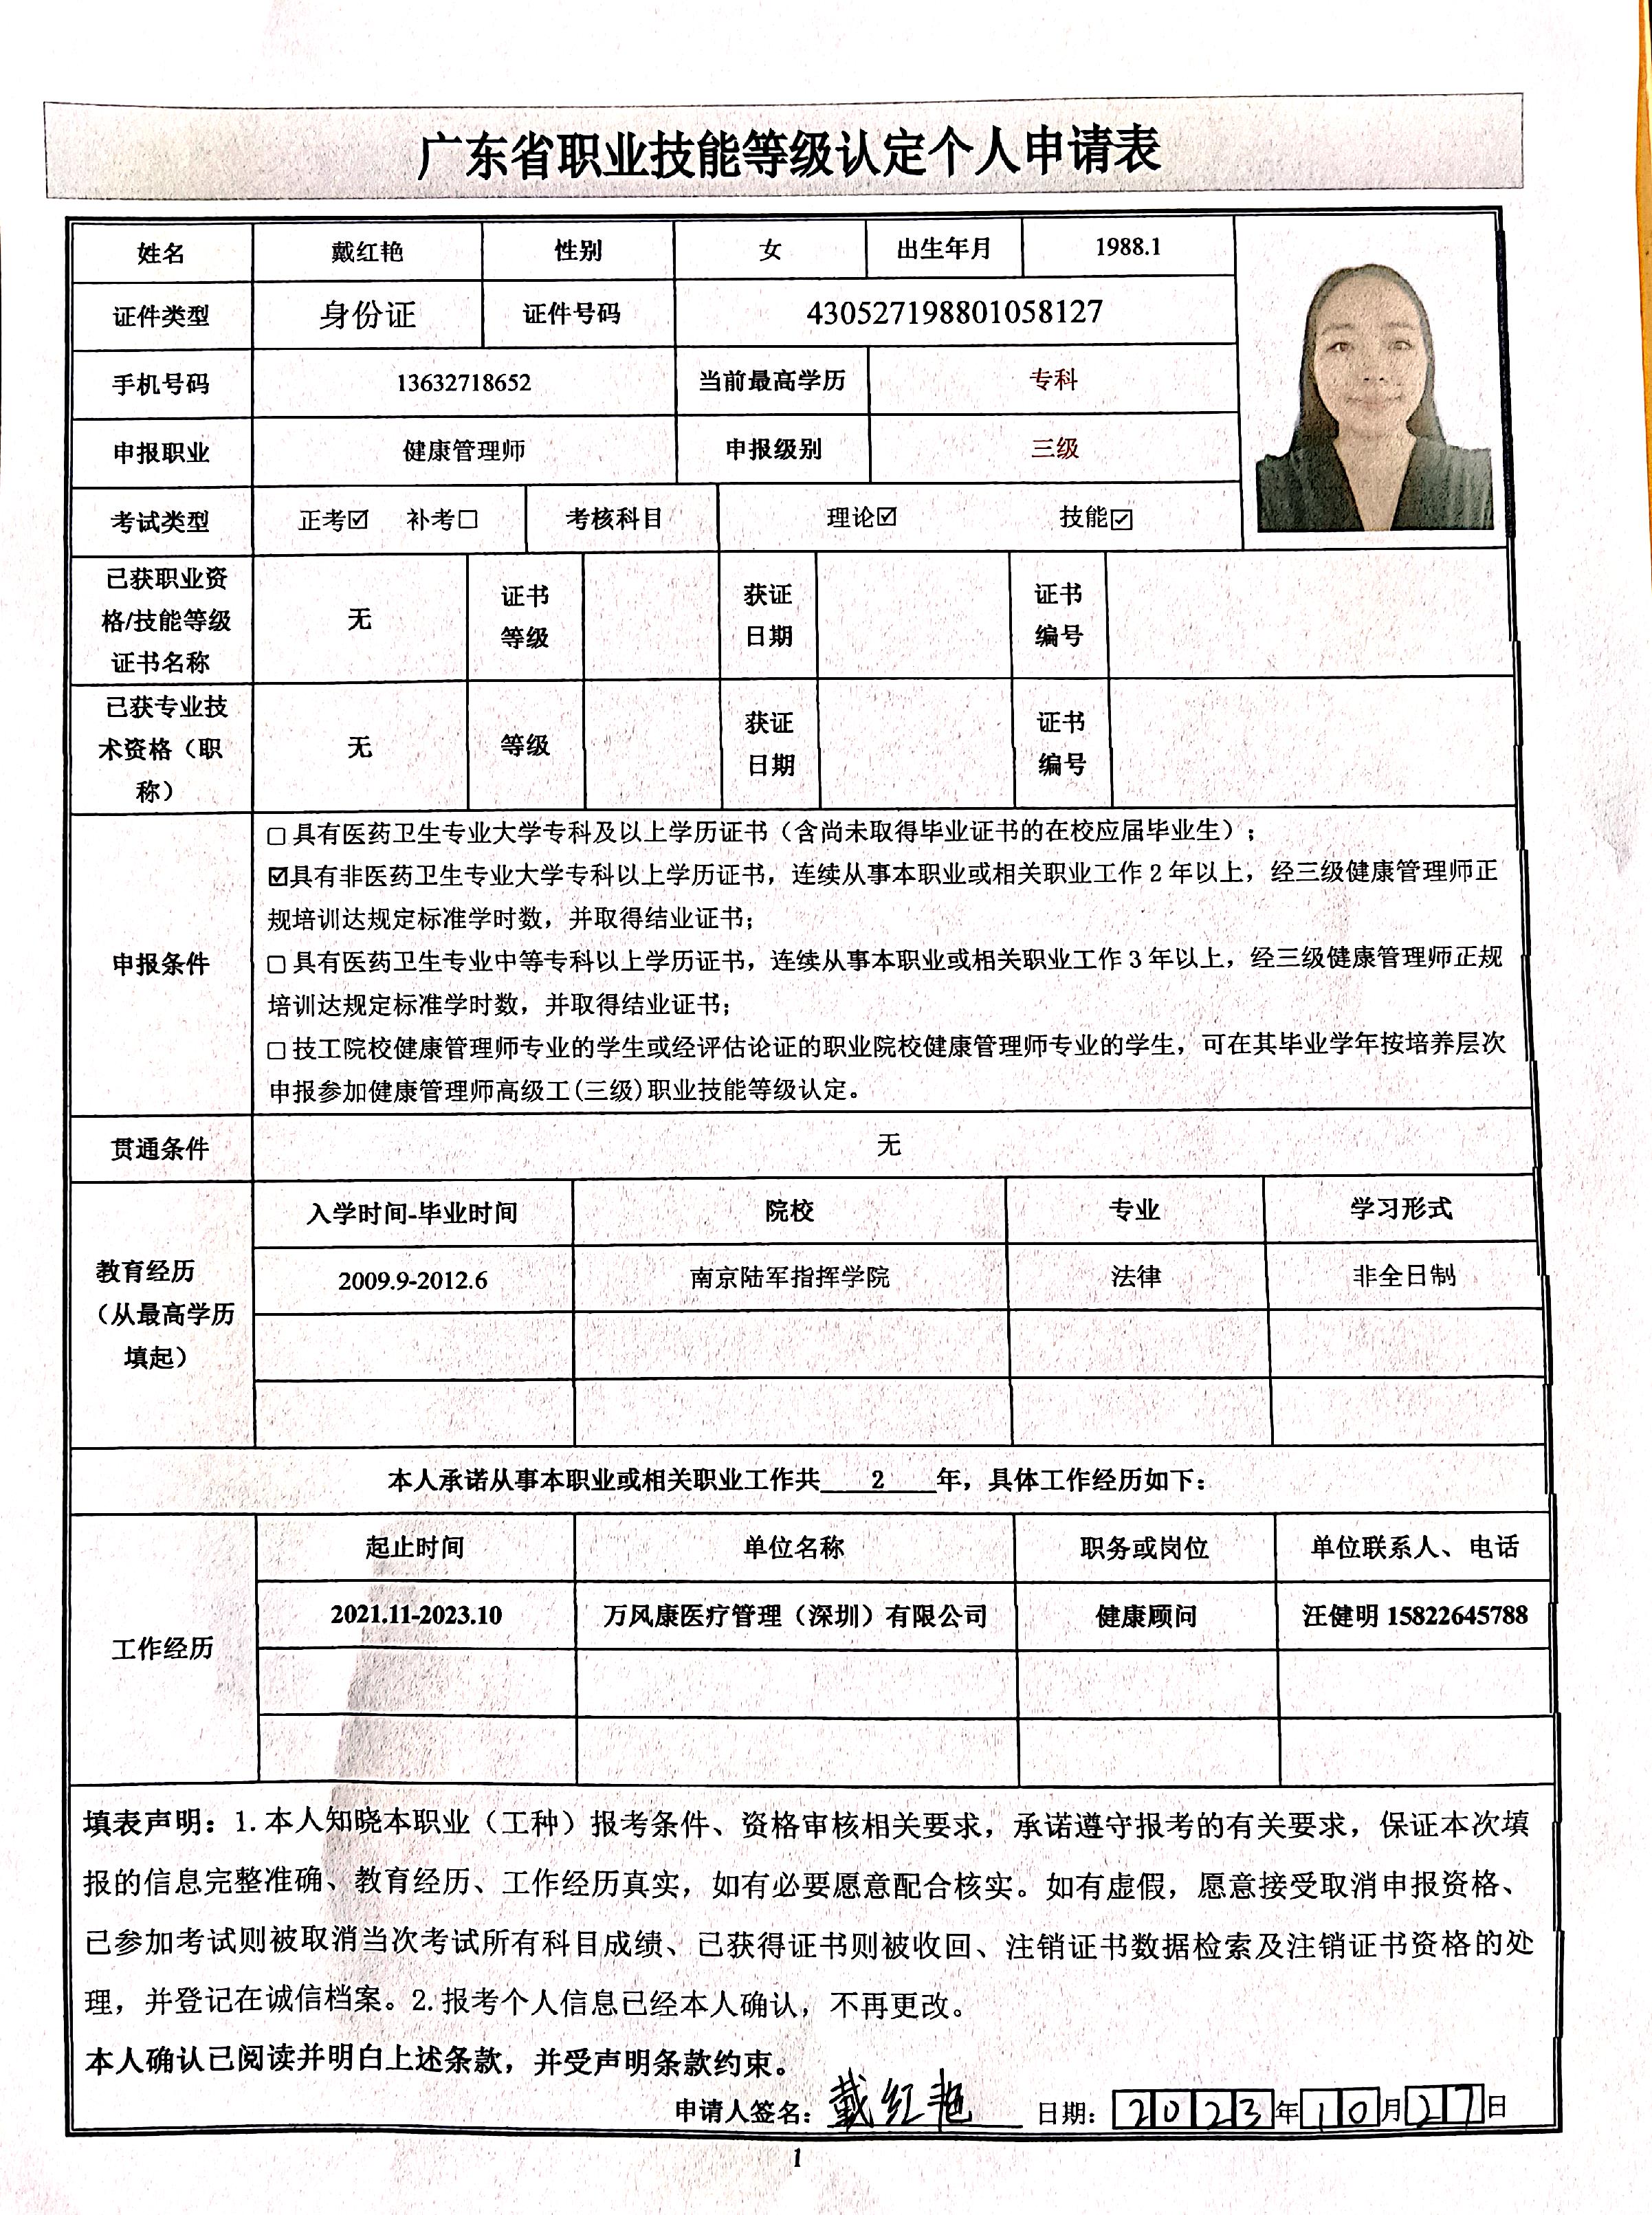 广东省职业技能等级认定个人申请表
姓名 戴红艳 性别 女 出生年月 1988.1
证件类型 身份证 证件号码 430527198801058127
手机号码 13632718652 当前最高学历 专科
申报职业 健康管理师 申报级别 三级
考试类型 正考☑ 补考☐ 考核科目 理论☑ 技能☑
已获职业资
格/技能等级
证书名称
无
证书
等级
获证
日期
证书
编号
已获专业技
术资格（职
称）
无
等级
获证
日期
证书
编号
申报条件
☐具有医药卫生专业大学专科及以上学历证书（含尚未取得毕业证书的在校应届毕业生）；
☑具有非医药卫生专业大学专科以上学历证书，连续从事本职业或相关职业工作2年以上，经三级健康管理师正
规培训达规定标准学时数，并取得结业证书；
☐具有医药卫生专业中等专科以上学历证书，连续从事本职业或相关职业工作3年以上，经三级健康管理师正规
培训达规定标准学时数，并取得结业证书；
☐技工院校健康管理师专业的学生或经评估论证的职业院校健康管理师专业的学生，可在其毕业学年按培养层次
申报参加健康管理师高级工(三级)职业技能等级认定。
贯通条件 无
教育经历
（从最高学历
填起）
入学时间-毕业时间 院校 专业 学习形式
2009.9-2012.6 南京陆军指挥学院 法律 非全日制
本人承诺从事本职业或相关职业工作共 2 年，具体工作经历如下：
工作经历
起止时间 单位名称 职务或岗位 单位联系人、电话
2021.11-2023.10 万风康医疗管理（深圳）有限公司 健康顾问 汪健明 15822645788
填表声明：1.本人知晓本职业（工种）报考条件、资格审核相关要求，承诺遵守报考的有关要求，保证本次填
报的信息完整准确、教育经历、工作经历真实，如有必要愿意配合核实。如有虚假，愿意接受取消申报资格、
已参加考试则被取消当次考试所有科目成绩、已获得证书则被收回、注销证书数据检索及注销证书资格的处
理，并登记在诚信档案。2.报考个人信息已经本人确认，不再更改。
本人确认已阅读并明白上述条款，并受声明条款约束。
申请人签名：戴红艳 日期：2023年10月27日
1